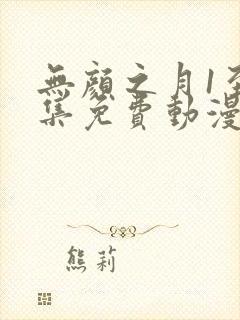 無顏之月1至
集免費動漫
熊莉